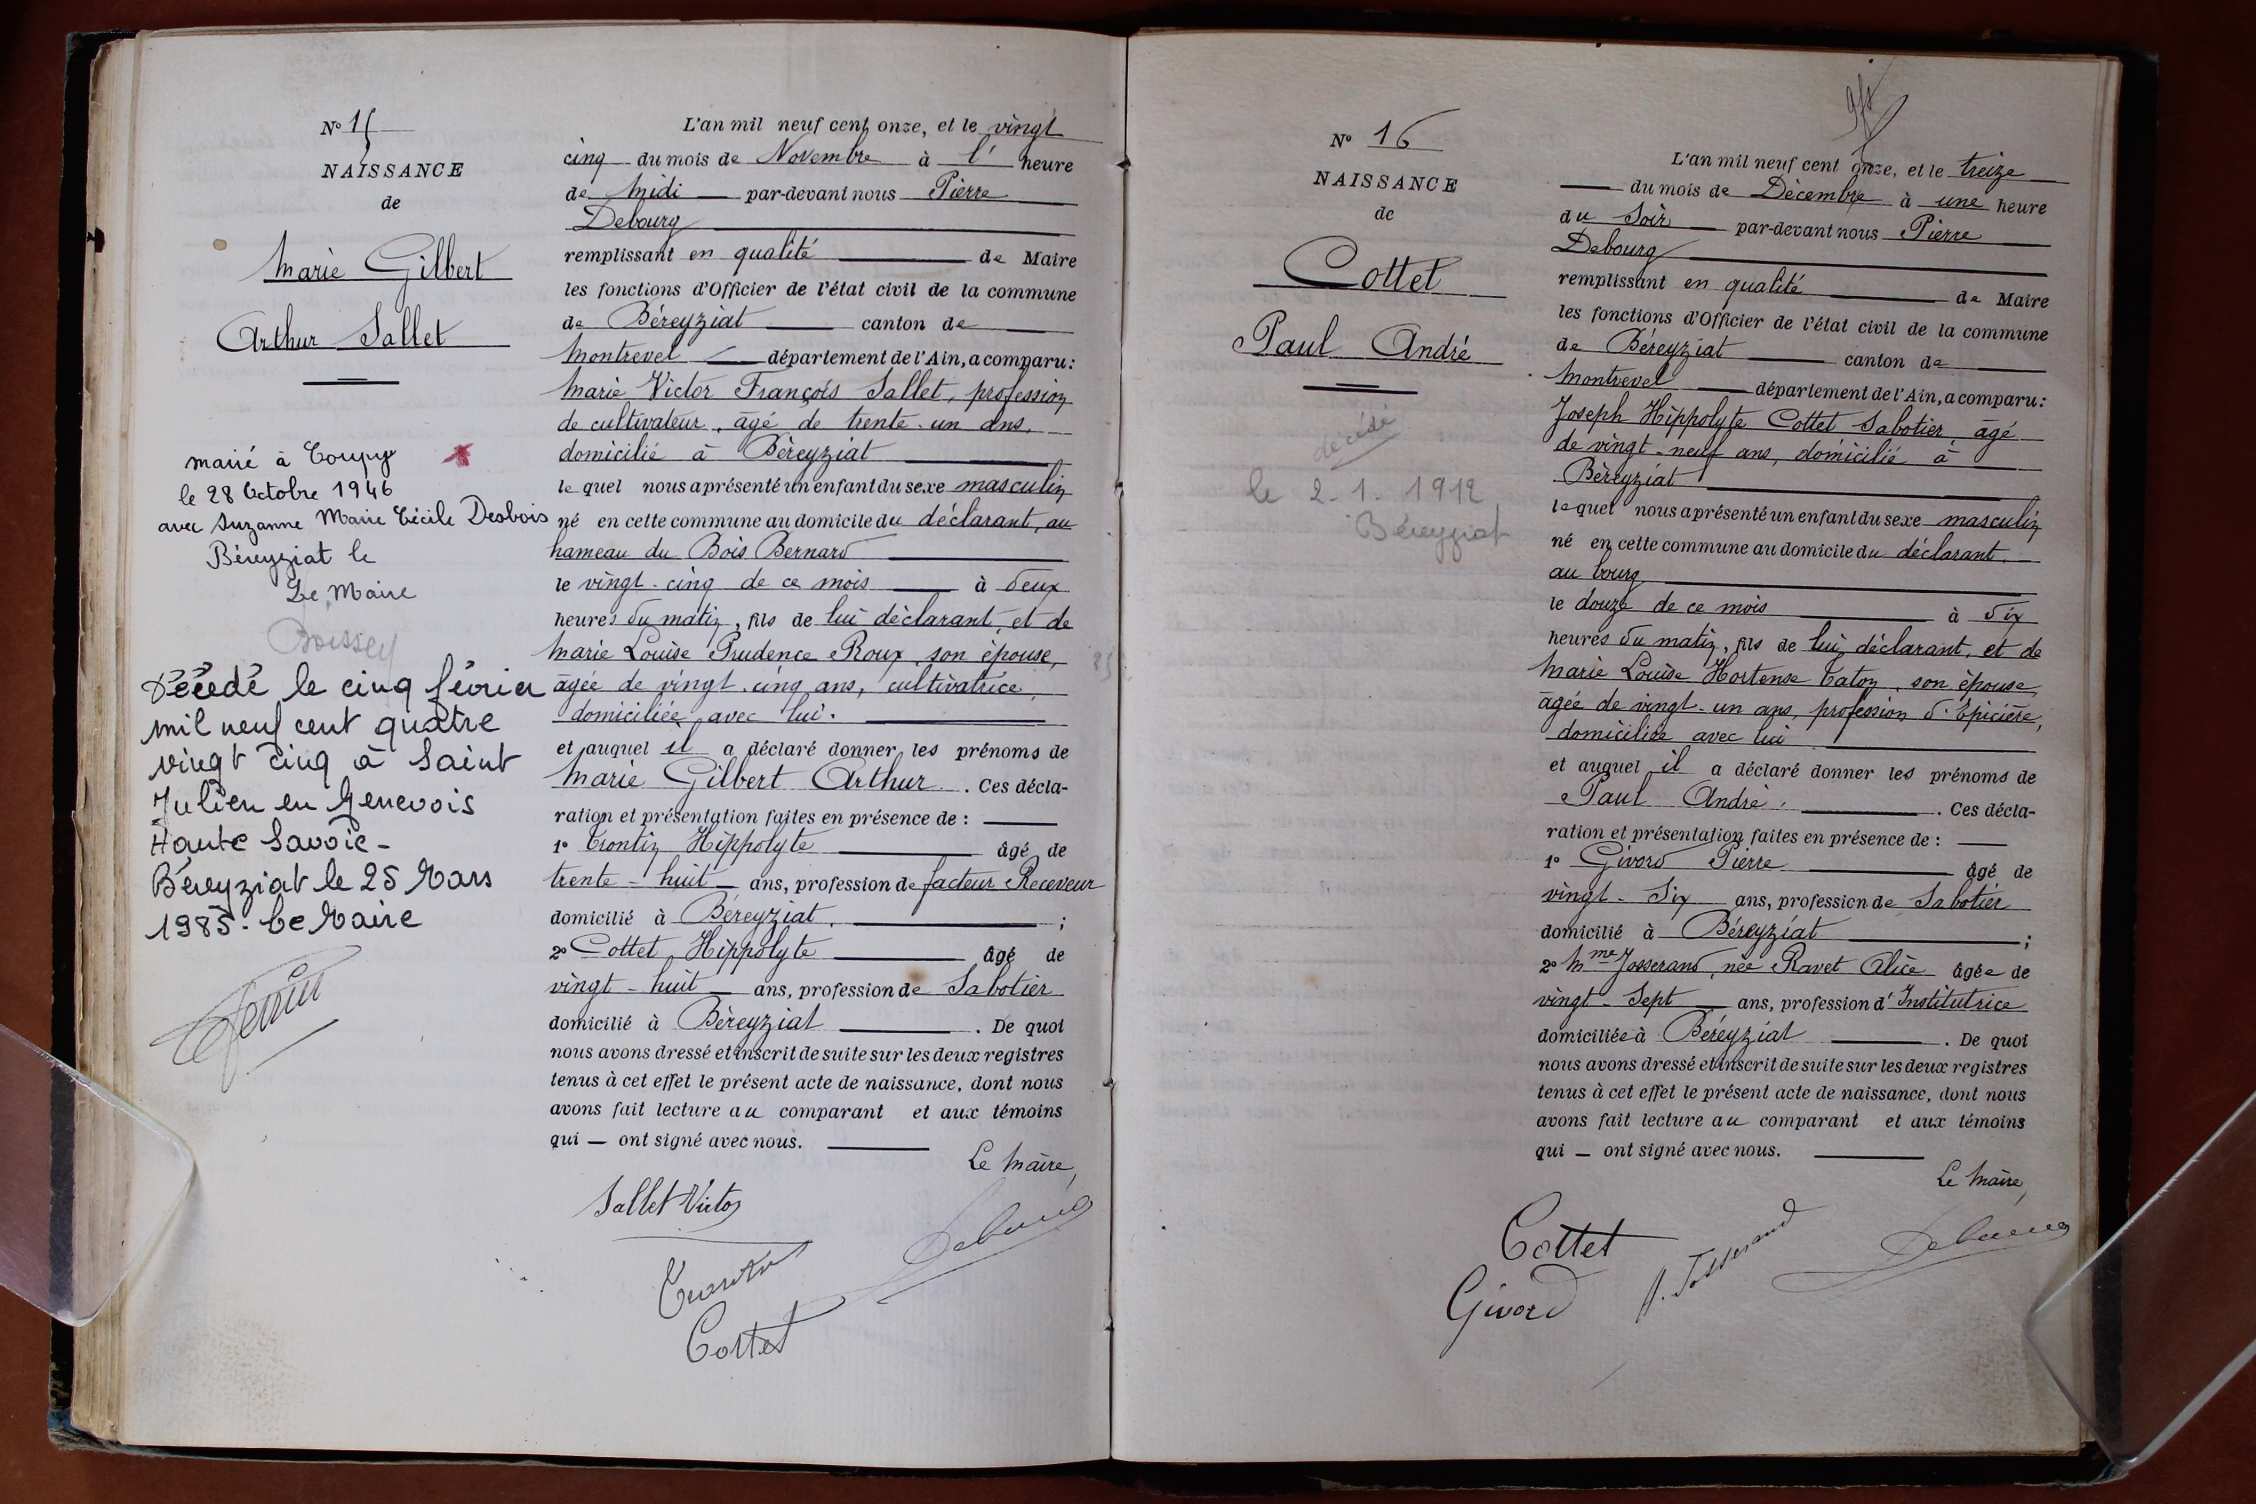 N° 15
NAISSANCE
de
Marie Gilbert
Arthur Sallet
marié à Coupy
le 28 Octobre 1946
avec Suzanne Marie Cécile Desbois
Béreyziat le
Le Maire
Boissey
Décédé le cinq février
mil neuf cent quatre
vingt cinq à Saint
Julien en Genevois
Haute Savoie -
Béreyziat le 25 Mars
1985. Le Maire
L'an mil neuf cent onze, et le vingt
cinq du mois de Novembre à l' heure
de Midi par-devant nous Pierre
Debourg
remplissant en qualité de Maire
les fonctions d'Officier de l'état civil de la commune
de Béreyziat canton de
Montrevel département de l'Ain, a comparu :
Marie Victor François Sallet, profession
de cultivateur, âgé de trente-un ans,
domicilié à Béreyziat
lequel nous a présenté un enfant du sexe masculin
né en cette commune au domicile du déclarant, au
hameau du Bois Bernard
le vingt-cinq de ce mois à deux
heures du matin, fils de lui déclarant, et de
Marie Louise Prudence Roux, son épouse,
âgée de vingt-cinq ans, cultivatrice,
domiciliée avec lui.
et auquel il a déclaré donner les prénoms de
Marie Gilbert Arthur . Ces décla-
ration et présentation faites en présence de :
1° Trontin Hippolyte âgé de
trente-huit ans, profession de facteur Receveur
domicilié à Béreyziat. ;
2° Cottet Hippolyte âgé de
vingt-huit ans, profession de Sabotier
domicilié à Béreyziat . De quoi
nous avons dressé et inscrit de suite sur les deux registres
tenus à cet effet le présent acte de naissance, dont nous
avons fait lecture au comparant et aux témoins
qui — ont signé avec nous.
Le Maire,
Sallet Victor
Debourg
Trontin
Cottet
N° 16
NAISSANCE
de
Cottet
Paul André
décédé
le 2-1-1912
Béreyziat
L'an mil neuf cent onze, et le treize
du mois de Décembre à une heure
du Soir par-devant nous Pierre
Debourg
remplissant en qualité de Maire
les fonctions d'Officier de l'état civil de la commune
de Béreyziat canton de
Montrevel département de l'Ain, a comparu :
Joseph Hippolyte Cottet Sabotier âgé
de vingt-neuf ans, domicilié à
Béreyziat
lequel nous a présenté un enfant du sexe masculin
né en cette commune au domicile du déclarant,
au bourg
le douze de ce mois à dix
heures du matin, fils de lui déclarant, et de
Marie Louise Hortense Caton, son épouse,
âgée de vingt-un ans, profession d'Epicière,
domiciliée avec lui
et auquel il a déclaré donner les prénoms de
Paul André. . Ces décla-
ration et présentation faites en présence de :
1° Givord Pierre âgé de
vingt-six ans, profession de Sabotier
domicilié à Béreyziat ;
2° Mme Josserand, née Ravet Alice âgée de
vingt-sept ans, profession d'Institutrice
domiciliée à Béreyziat . De quoi
nous avons dressé et inscrit de suite sur les deux registres
tenus à cet effet le présent acte de naissance, dont nous
avons fait lecture au comparant et aux témoins
qui — ont signé avec nous.
Le Maire,
Cottet
A. Josserand
Debourg
Givord